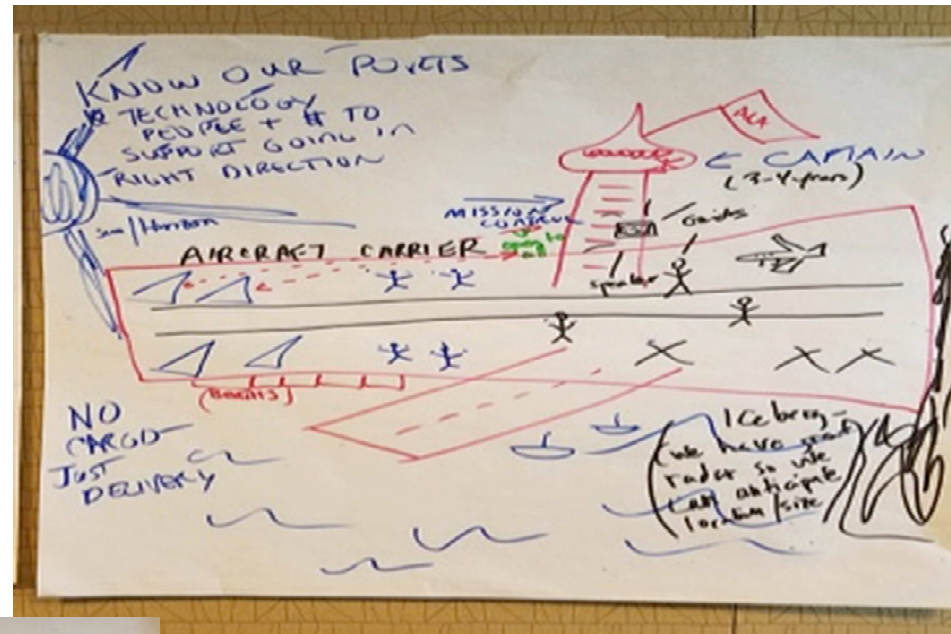 KNOW OUR PORTS
TECHNOLOGY
PEOPLE + # TO
SUPPORT GOING IN
RIGHT DIRECTION
sun/Horizon
AIRCRAFT CARRIER
MISSION
CONTROL
open to
all
ACA
← CAPTAIN
(3-4 years)
Guides
speaker
(Boards)
NO
CARGO
JUST
DELIVERY
Iceberg -
(we have great
radar so we
can anticipate
location/size)